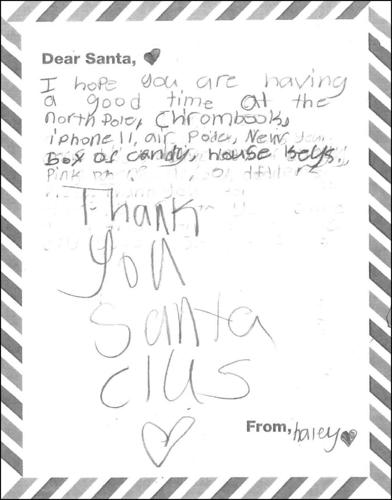 Dear Santa,
I hope you are having
a good time at the
north Pole, Chrombook,
iphone 11, air Pods, New
box of candy, house keys,
Pink
Thank
You
Santa
clus
From, haley